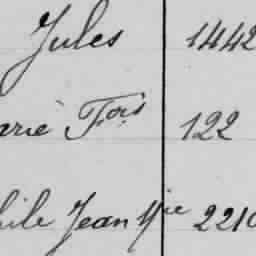 Jules 1442
arie Fois 122
hile Jean Mie 2210